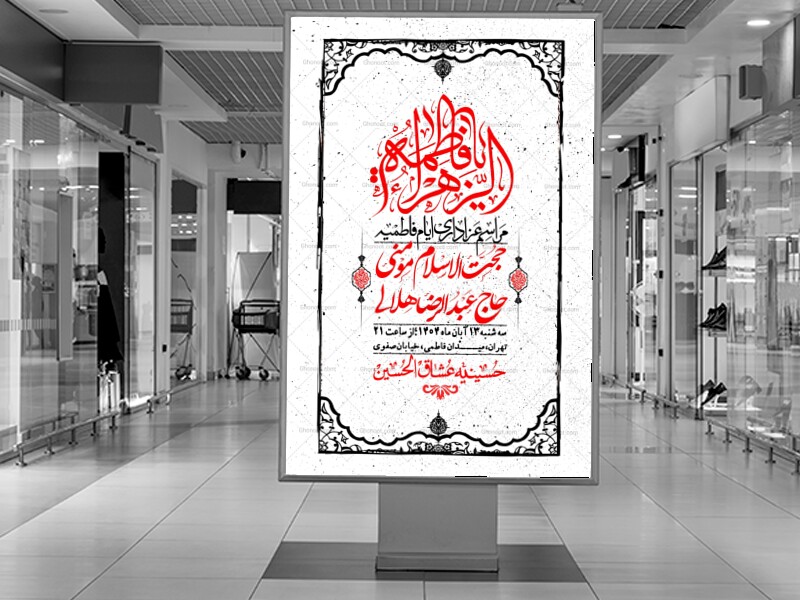 یا فاطمة الزهراء
مراسم عزاداری ایام فاطمیه
حجت الاسلام مومنی
حاج عبدالرضا هلالی
سه شنبه ۱۳ آبان ماه ۱۴۰۴ از ساعت ۲۱
تهران، میدان فاطمی، خیابان صفوی
حسینیه عشاق الحسین